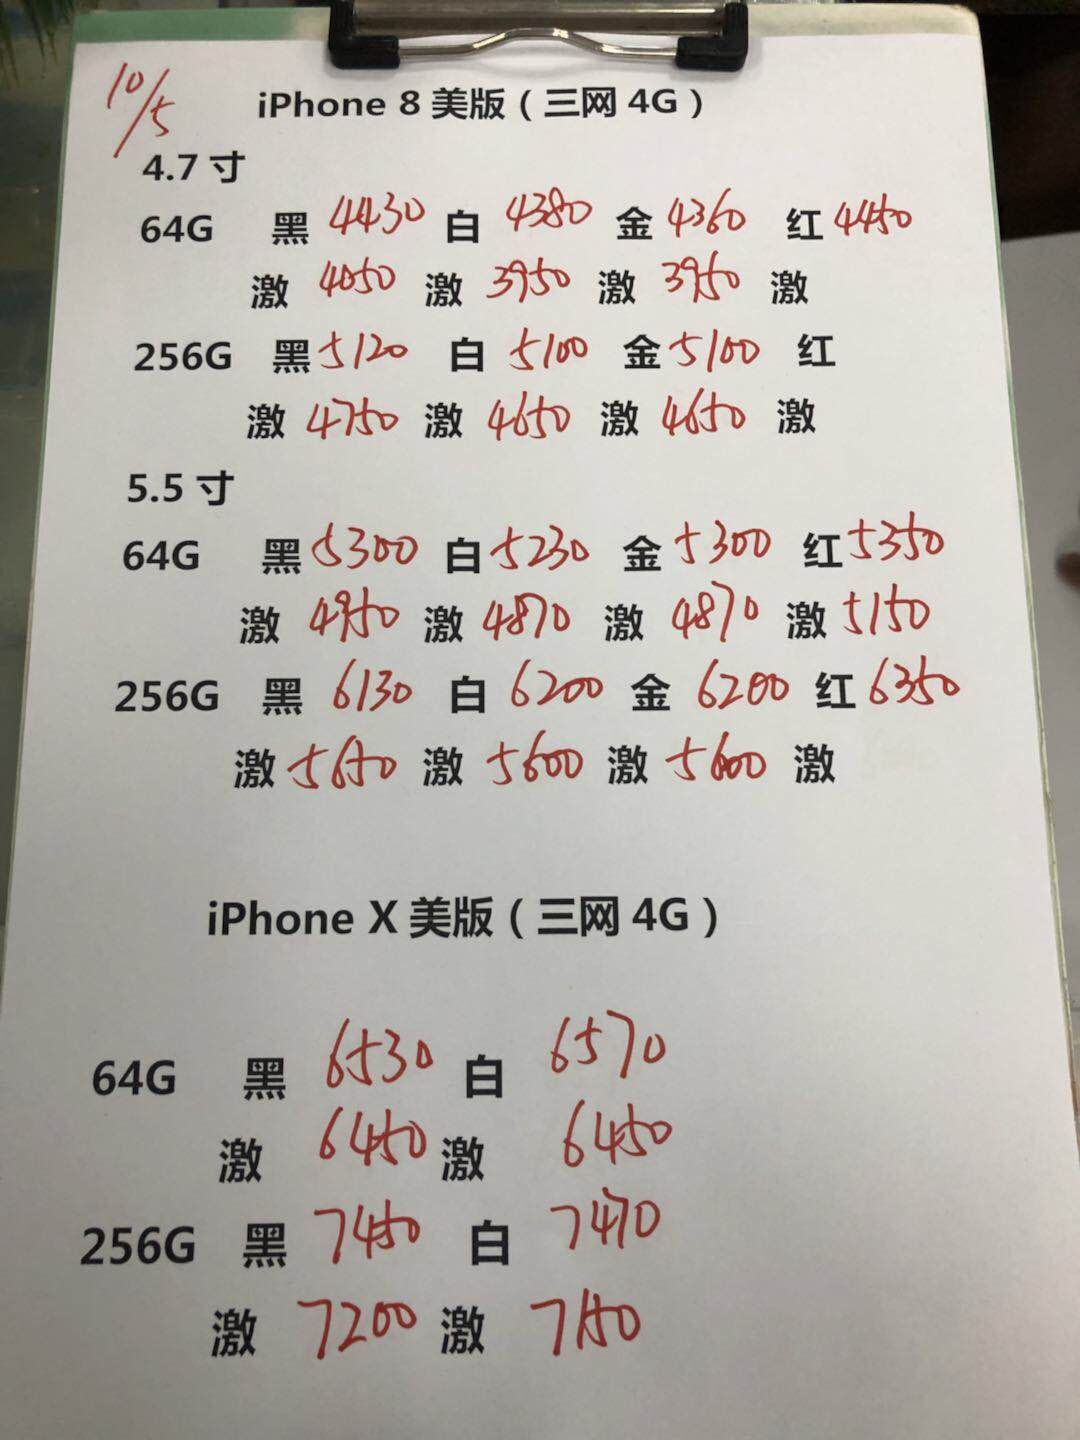 10/5
iPhone 8 美版（三网 4G）
4.7 寸
64G 黑 4430 白 4380 金 4360 红 4450
激 4050 激 3950 激 3950 激
256G 黑 5120 白 5100 金 5100 红
激 4750 激 4650 激 4650 激
5.5 寸
64G 黑 5300 白 5230 金 5300 红 5350
激 4950 激 4870 激 4870 激 5150
256G 黑 6130 白 6200 金 6200 红 6350
激 5650 激 5600 激 5600 激
iPhone X 美版（三网 4G）
64G 黑 6530 白 6570
激 6450 激 6450
256G 黑 7450 白 7470
激 7200 激 7150